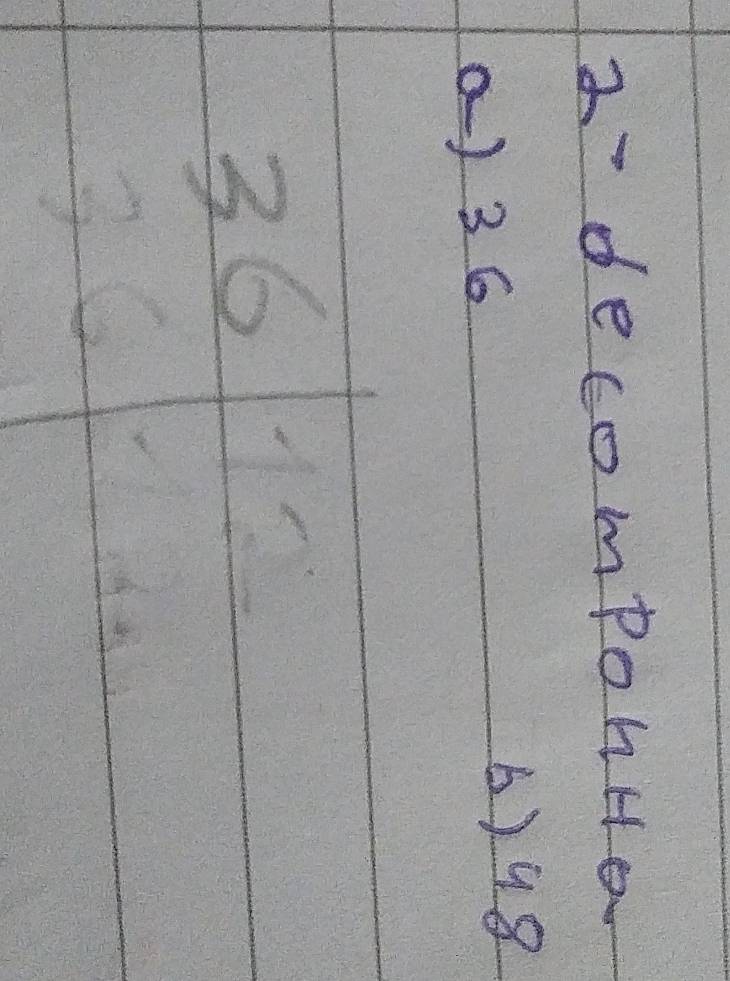 2- decomponha
a) 36 b) 48
36 12
36